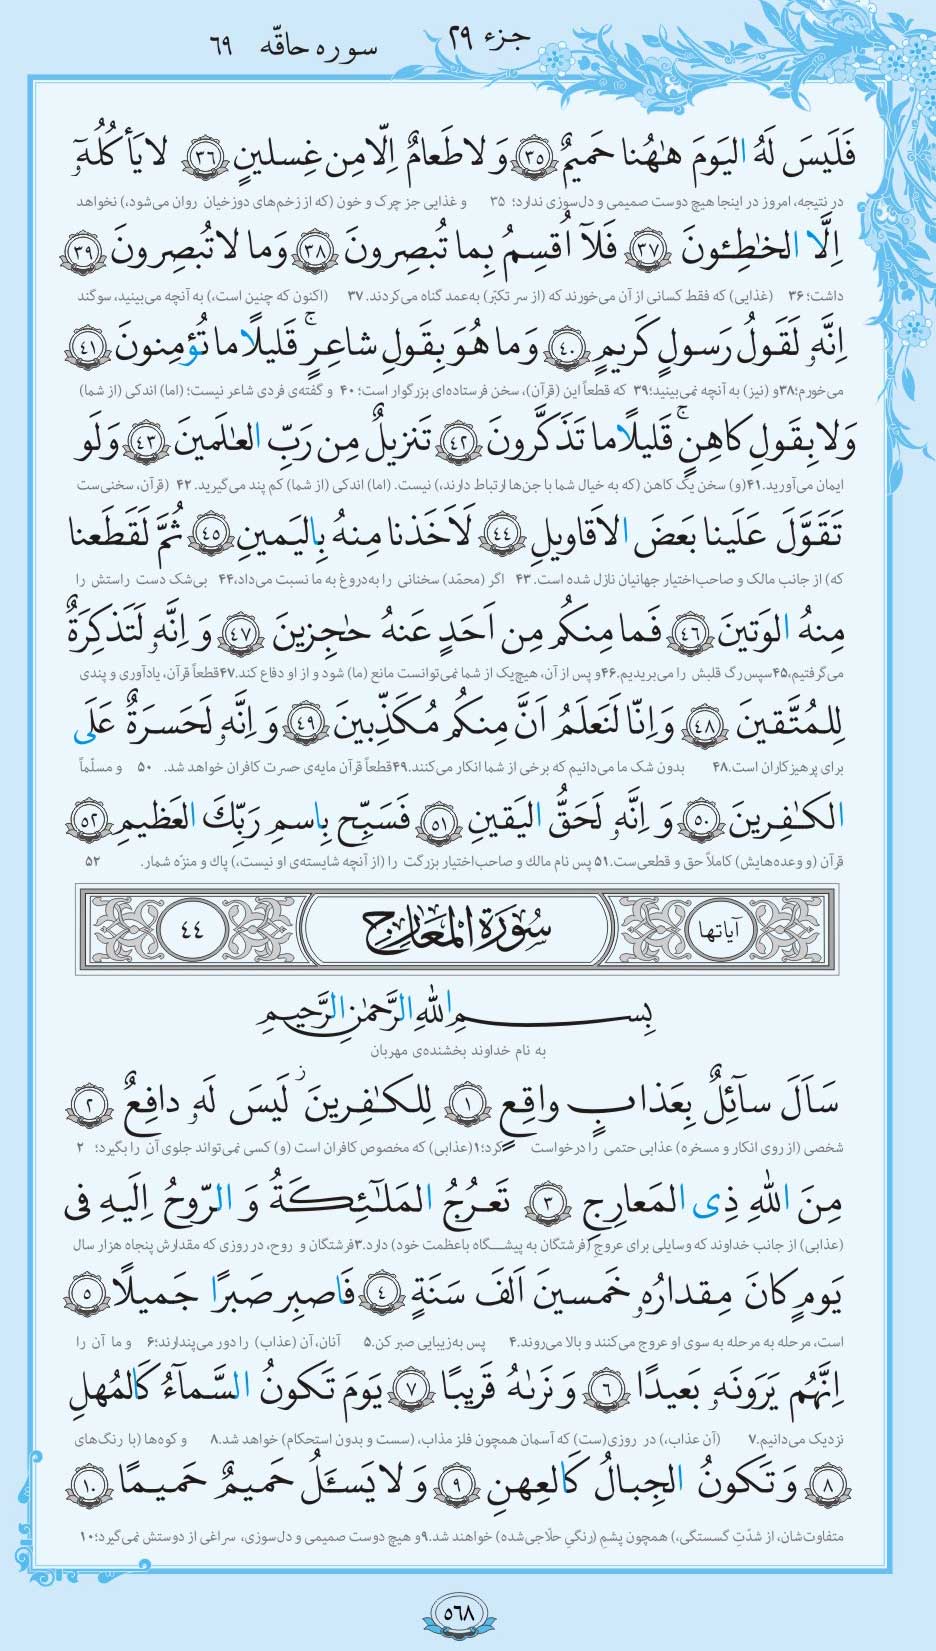 جزء ۲۹
سوره حاقّه ۶۹
فَلَيسَ لَهُ اليَومَ هٰهُنا حَميمٌ ﴿٣٥﴾ وَ لا طَعامٌ اِلّا مِن غِسلينٍ ﴿٣٦﴾ لا يَأكُلُهٓ
در نتیجه، امروز در اینجا هیچ دوست صمیمی و دل‌سوزی ندارد؛ ۳۵ و غذایی جز چرک و خون (که از زخم‌های دوزخیان روان می‌شود،) نخواهد
اِلَّا الخٰطِـئونَ ﴿٣٧﴾ فَلآ اُقسِمُ بِما تُبصِرونَ ﴿٣٨﴾ وَما لا تُبصِرونَ ﴿٣٩﴾
داشت؛ ۳۶ (غذایی) که فقط کسانی از آن می‌خورند که (از سر تکبّر) به‌عمد گناه می‌کردند. ۳۷ (اکنون که چنین است،) به آنچه می‌بینید، سوگند
اِنَّهٗ لَقَولُ رَسولٍ كَريمٍ ﴿٤٠﴾ وَما هُوَ بِقَولِ شاعِرٍ ۚ قَليلًا ما تُؤمِنونَ ﴿٤١﴾
می‌خورم؛۳۸ و (نیز) به آنچه نمی‌بینید؛۳۹ که قطعاً این (قرآن)، سخن فرستاده‌ای بزرگوار است؛ ۴۰ و گفته‌ی فردی شاعر نیست؛ (اما) اندکی (از شما)
وَلا بِقَولِ كاهِنٍ ۚ قَليلًا ما تَذَكَّرونَ ﴿٤٢﴾ تَنزيلٌ مِن رَبِّ العٰلَمينَ ﴿٤٣﴾ وَلَو
ایمان می‌آورید.۴۱ (و) سخن یک کاهن (که به خیال شما با جن‌ها ارتباط دارند،) نیست. (اما) اندکی (از شما) کم پند می‌گیرید. ۴۲ (قرآن، سخنی‌ست
تَقَوَّلَ عَلَينا بَعضَ الاَقاويلِ ﴿٤٤﴾ لَاَخَذنا مِنهُ بِاليَمينِ ﴿٤٥﴾ ثُمَّ لَقَطَعنا
که) از جانب مالک و صاحب‌اختیار جهانیان نازل شده است. ۴۳ اگر (محمّد) سخنانی را به‌دروغ به ما نسبت می‌داد،۴۴ بی‌شک دست راستش را
مِنهُ الوَتينَ ﴿٤٦﴾ فَما مِنكُم مِن اَحَدٍ عَنهُ حٰجِزينَ ﴿٤٧﴾ وَ اِنَّهٗ لَتَذكِرَةٌ
می‌گرفتیم،۴۵ سپس رگ قلبش را می‌بریدیم.۴۶ و پس از آن، هیچ‌یک از شما نمی‌توانست مانع (ما) شود و از او دفاع کند.۴۷ قطعاً قرآن، یادآوری و پندی
لِلمُتَّقينَ ﴿٤٨﴾ وَ اِنّا لَنَعلَمُ اَنَّ مِنكُم مُكَذِّبينَ ﴿٤٩﴾ وَ اِنَّهٗ لَحَسرَةٌ عَلَى
برای پرهیزکاران است.۴۸ بدون شک ما می‌دانیم که برخی از شما انکار می‌کنند.۴۹ قطعاً قرآن مایه‌ی حسرت کافران خواهد شد. ۵۰ و مسلّماً
الكٰفِرينَ ﴿٥٠﴾ وَ اِنَّهٗ لَحَقُّ اليَقينِ ﴿٥١﴾ فَسَبِّح بِاسمِ رَبِّكَ العَظيمِ ﴿٥٢﴾
قرآن (و وعده‌هایش) کاملاً حق و قطعی‌ست.۵۱ پس نام مالك و صاحب‌اختیار بزرگت را (از آنچه شایسته‌ی او نیست،) پاك و منزّه شمار. ۵۲
آیاتها سُورَةُ المَعَارِجِ ٤٤
بِسمِ اللهِ الرَّحمٰنِ الرَّحيمِ
به نام خداوند بخشنده‌ی مهربان
سَاَلَ سآئِلٌ بِعَذابٍ واقِعٍ ﴿١﴾ لِلكٰفِرينَ ز لَيسَ لَهٗ دافِعٌ ﴿٢﴾
شخصی (از روی انکار و مسخره) عذابی حتمی را درخواست کرد؛۱ (عذابی) که مخصوص کافران است (و) کسی نمی‌تواند جلوی آن را بگیرد؛ ۲
مِنَ اللهِ ذِى المَعارِجِ ﴿٣﴾ تَعرُجُ المَلٰٓئِكَةُ وَ الرّوحُ اِلَيهِ فى
(عذابی) از جانب خداوند که وسایلی برای عروج (فرشتگان به پیشگاه باعظمت خود) دارد.۳ فرشتگان و روح، در روزی که مقدارش پنجاه هزار سال
يَومٍ كانَ مِقدارُهٗ خَمسينَ اَلفَ سَنَةٍ ﴿٤﴾ فَاصبِر صَبرًا جَميلًا ﴿٥﴾
است، مرحله به مرحله به سوی او عروج می‌کنند و بالا می‌روند.۴ پس به‌زیبایی صبر کن.۵ آنان، آن (عذاب) را دور می‌پندارند؛۶ و ما آن را
اِنَّهُم يَرَونَهٗ بَعيدًا ﴿٦﴾ وَ نَرٰىهُ قَريبًا ﴿٧﴾ يَومَ تَكونُ السَّمآءُ كَالمُهلِ
نزدیک می‌دانیم.۷ (آن عذاب،) در روزی(ست) که آسمان همچون فلز مذاب، (سست و بدون استحکام) خواهد شد.۸ و کوه‌ها (با رنگ‌های
﴿٨﴾ وَ تَكونُ الجِبالُ كَالعِهنِ ﴿٩﴾ وَ لا يَسـَٔلُ حَميمٌ حَميمًا ﴿١٠﴾
متفاوت‌شان، از شدّتِ گسستگی،) همچون پشمِ (رنگیِ حلّاجی‌شده) خواهند شد.۹ و هیچ دوست صمیمی و دل‌سوزی، سراغی از دوستش نمی‌گیرد؛۱۰
۵۶۸